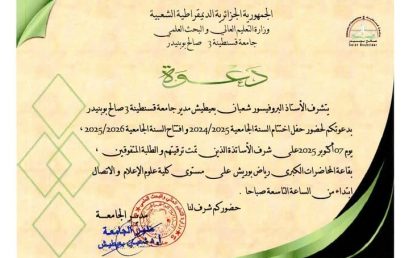 الجمهورية الجزائرية الديمقراطية الشعبية
وزارة التعليم العالي و البحث العلمي
جامعة قسنطينة 3 صالح بوبنيدر
دعوة
يتشرف الأستاذ البروفيسور شعباني بعيطيش مدير جامعة قسنطينة 3 صالح بوبنيدر
بدعوتكم لحضور حفل اختتام السنة الجامعية 2024/2025 و افتتاح السنة الجامعية 2025/2026 ،
يوم 07 أكتوبر 2025 على شرف الأساتذة الذين تمت ترقيتهم و الطلبة المتفوقين ،
بقاعة المحاضرات الكبرى رياض بوريش على مستوى كلية علوم الإعلام و الاتصال
ابتداء من الساعة التاسعة صباحا .
حضوركم شرف لنا
مدير الجامعة